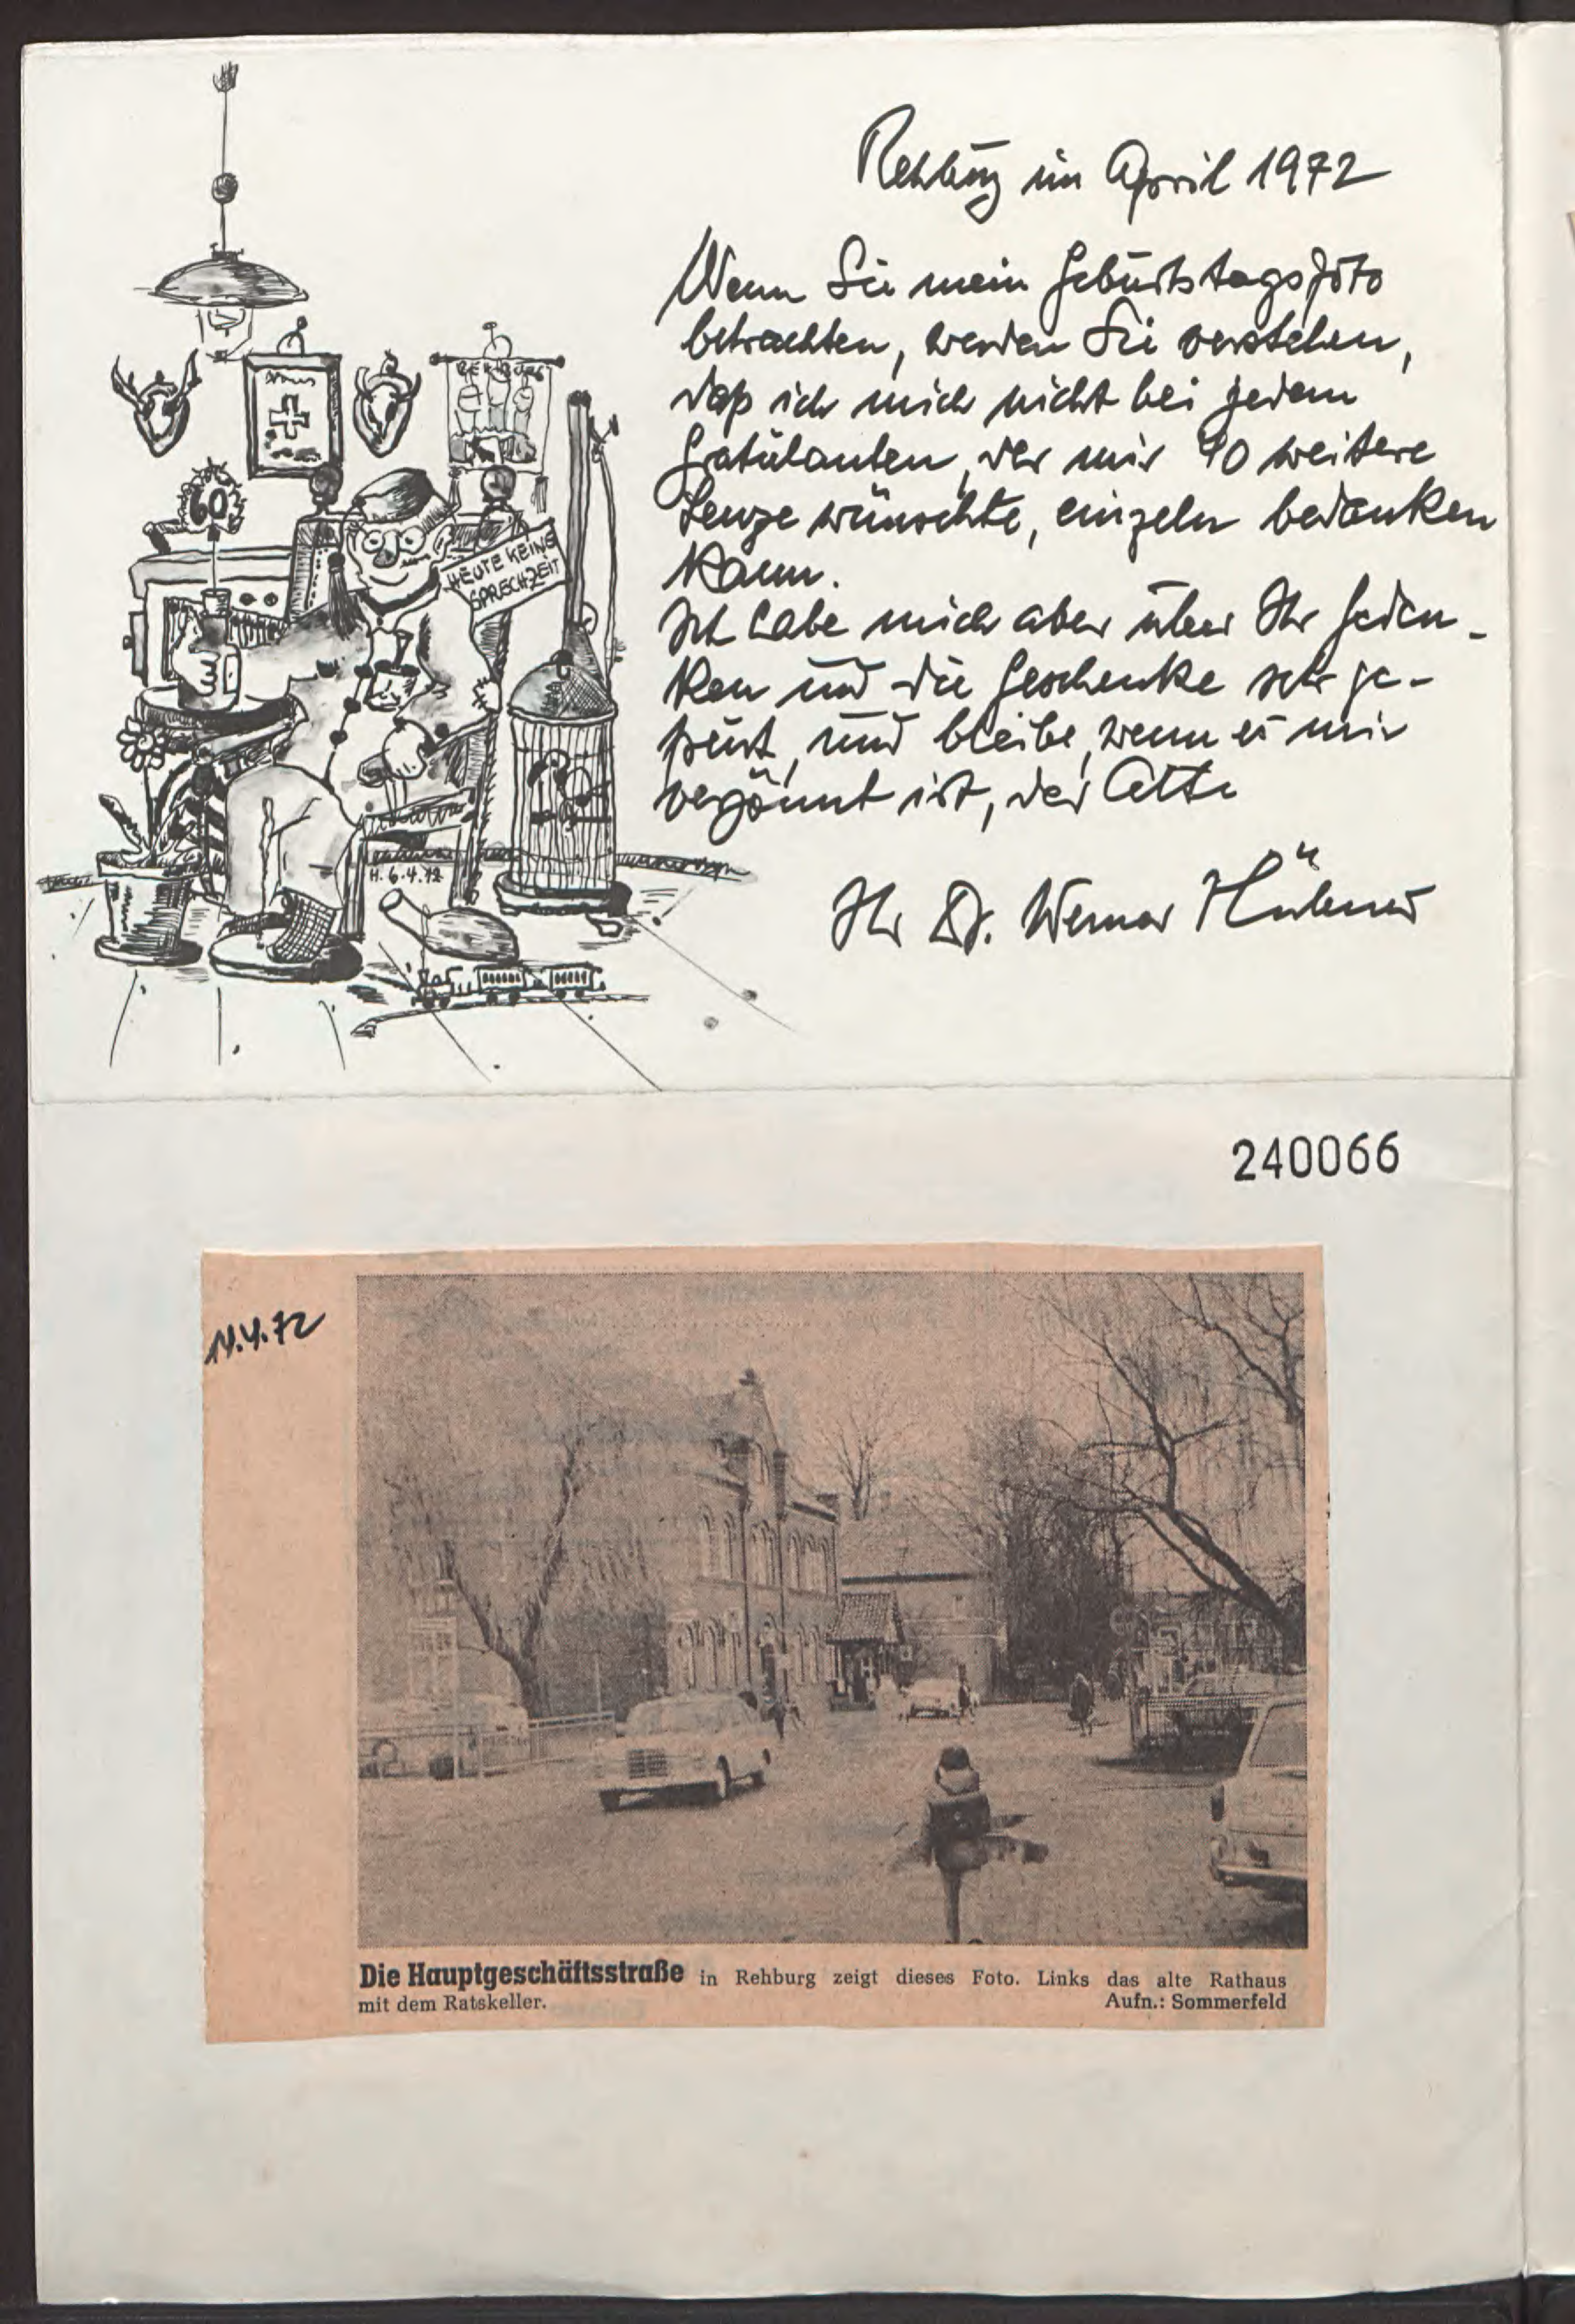 Rehburg im April 1972
Wenn Sie mein Geburtstagsfoto
betrachten, werden Sie verstehen,
daß ich mich nicht bei jedem
Gratulanten, der mir 40 weitere
Lenze wünschte, einzeln bedanken
kann.
Ich habe mich aber über Ihr Geden-
ken und die Geschenke sehr ge-
freut, und bleibe, wenn es mir
vergönnt ist, der Alte
Ihr Dr. Werner Hübner
REHBURG
60
HEUTE KEINE
SPRECHZEIT
H. 6.4.72
240066
11.4.72
Die Hauptgeschäftsstraße in Rehburg zeigt dieses Foto. Links das alte Rathaus
mit dem Ratskeller. Aufn.: Sommerfeld